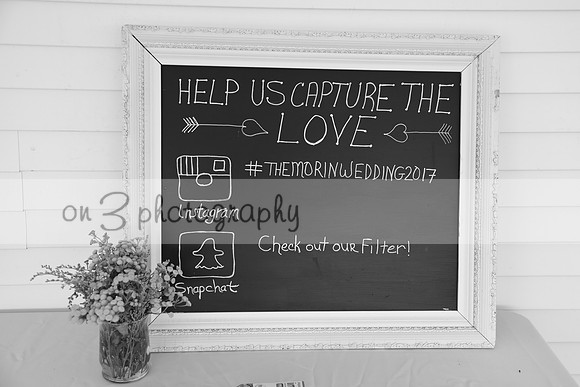 HELP US CAPTURE THE
LOVE
#THEMORINWEDDING2017
Instagram
on 3 photography
Check out our Filter!
Snapchat